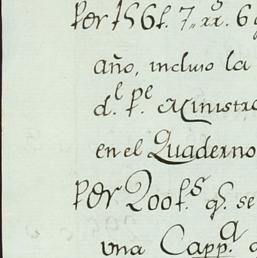 Per 156f. 7„ rr. 6
año, incluso la
d.l P.e Ministro
en el Quaderno
Per 200f.s q.
una Capp.a